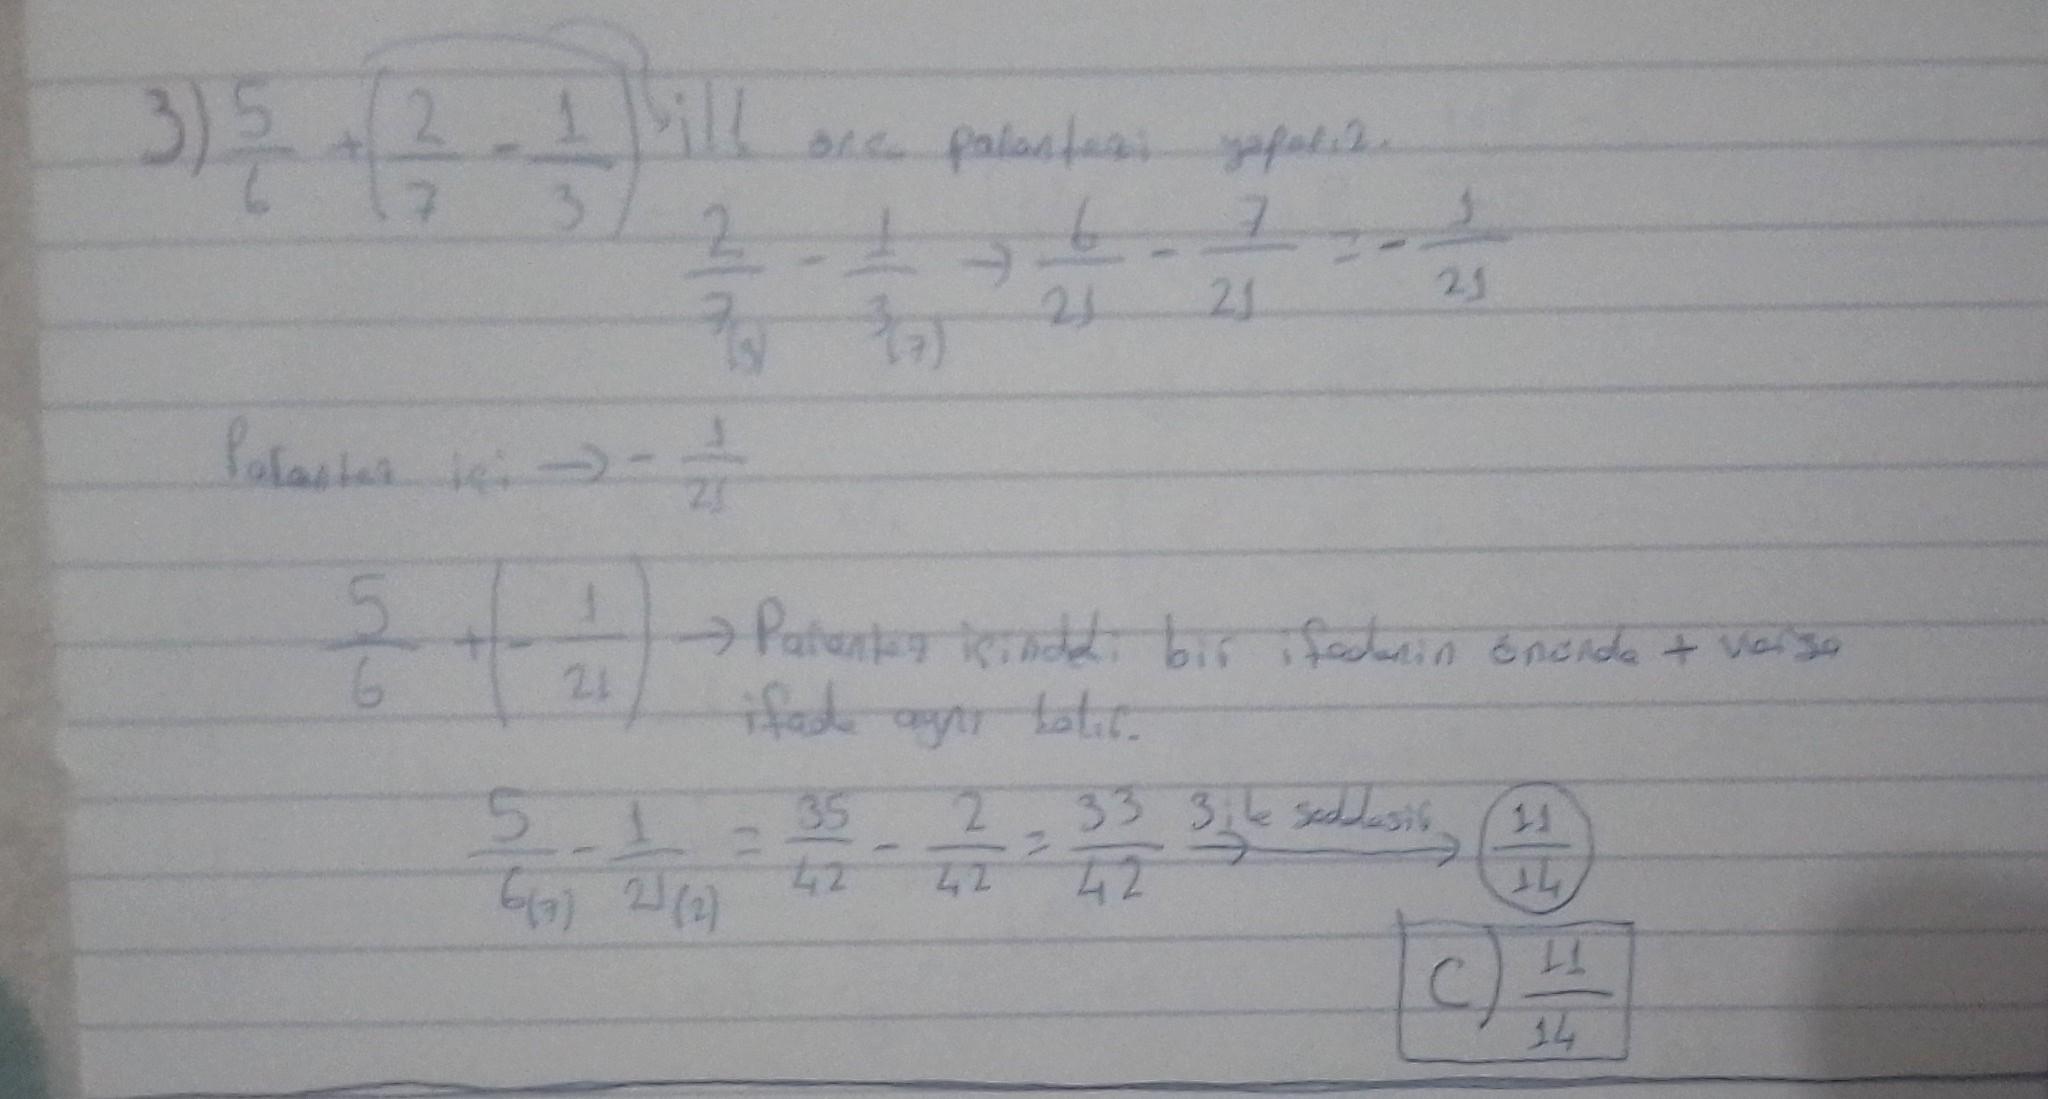 3) 5/6 + (2/7 - 1/3) ilk önce parantezi yaparız.
2/7(3) - 1/3(7) → 6/21 - 7/21 = - 1/21
Parantez içi → - 1/21
5/6 + (- 1/21) → Parantez içindeki bir ifadenin önünde + varsa
ifade aynı kalır.
5/6(7) - 1/21(2) = 35/42 - 2/42 = 33/42 3 ile sadeleşir → 11/14
C) 11/14